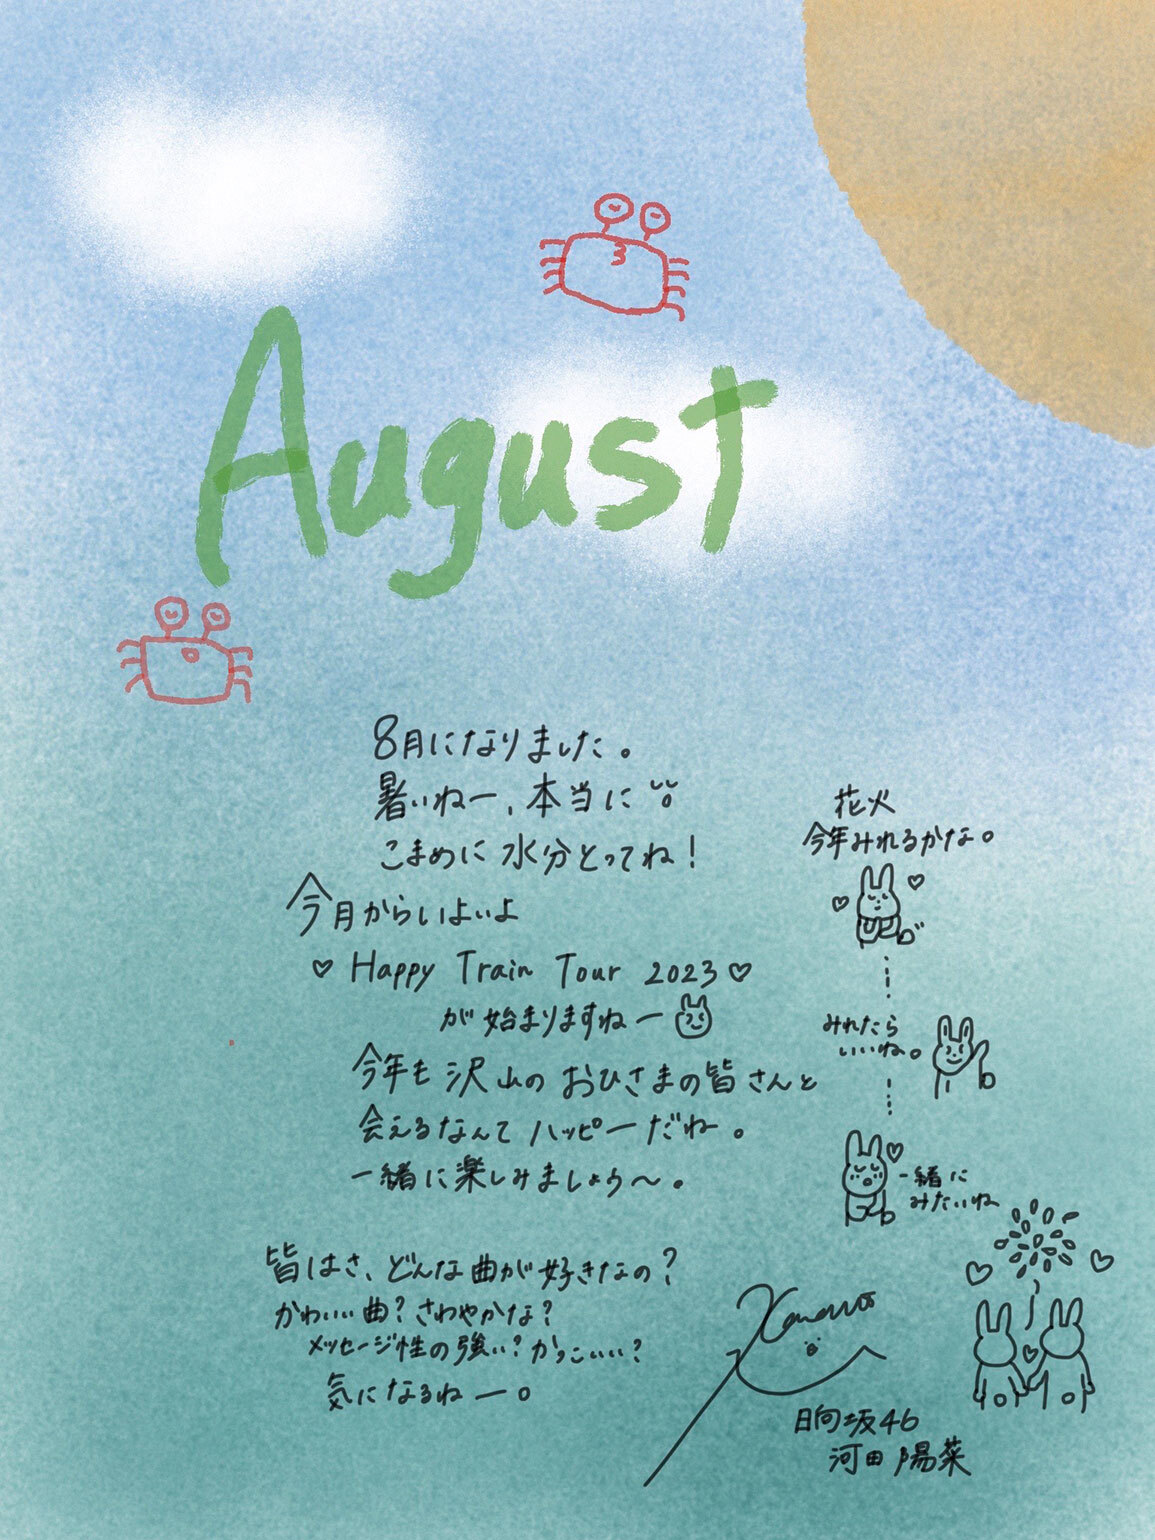 August
8月になりました。
暑いねー、本当に
こまめに水分とってね！
今月からいよいよ
♡ Happy Train Tour 2023 ♡
が始まりますねー
今年も沢山のおひさまの皆さんと
会えるなんてハッピーだねー。
一緒に楽しみましょう〜。
皆はさ、どんな曲が好きなの？
かわいい曲？さわやかな？
メッセージ性の強い？かっこいい？
気になるねー。
花火
今年みれるかな。
みれたら
いいね。
一緒に
みたいね
日向坂46
河田陽菜